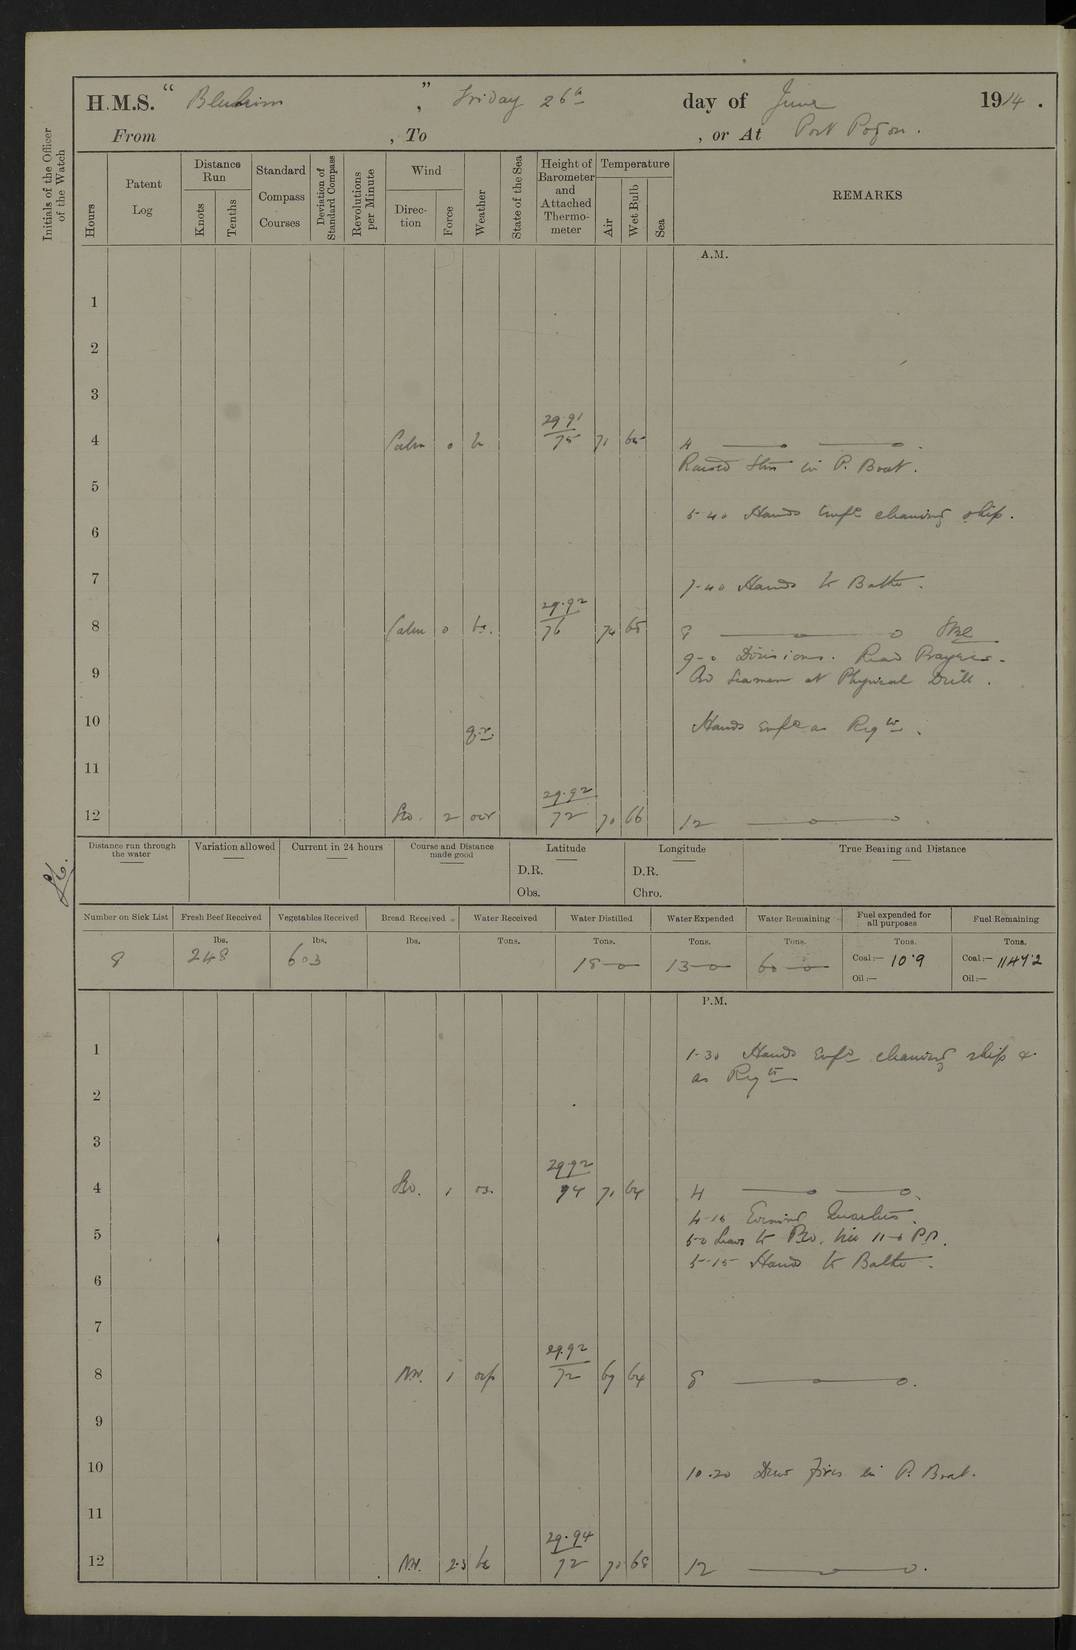 H.M.S. “ Blenheim ” , Friday 26th day of June 1914 .
From , To , or At Port Pogon .
Initials of the Officer of the Watch
Hours
Patent Log
Distance Run
Knots
Tenths
Standard Compass Courses
Deviation of Standard Compass
Revolutions per Minute
Wind
Direction
Force
Weather
State of the Sea
Height of Barometer and Attached Thermometer
Temperature
Air
Wet Bulb
Sea
REMARKS
A.M.
1
2
3
29.91
4 Calm 0 b 75 71 65 4
in P. Boat .
5
5-40 Hands Empd cleaning ship .
6
7
7-40 Hands to Bathe .
29.92
8 Calm 0 bc. 76 74 65 8
9-0 Divisions . Read Prayers .
9
Seamen at Physical Drill .
10
Hands Empd as Reqte .
q.r.
11
29.92
12 2 ocr 72 70 66 12
Distance run through the water
Variation allowed
Current in 24 hours
Course and Distance made good
Latitude
Longitude
True Bearing and Distance
D.R. D.R.
Obs. Chro.
Number on Sick List
Fresh Beef Received
Vegetables Received
Bread Received
Water Received
Water Distilled
Water Expended
Water Remaining
Fuel expended for all purposes
Fuel Remaining
lbs. lbs. lbs. Tons. Tons. Tons. Tons. Tons. Tons.
8 248 603 18-0 13-0 60-0 Coal:— 10.9 Coal:— 1147.2
Oil:— Oil:—
P.M.
1
1-30 Hands Empd cleaning ship &
as Reqte
2
3
29.92
4 1 74 71 64 4
4-15 Evening Quarters .
5
5-0 Leave to
5-15 Hands to Bathe .
6
7
29.92
8 N.W. 1 ocp 72 69 64 8
9
10
10.20 Drew fires in P. Boat .
11
29.94
12 N.W. 2.3 bc 72 70 68 12